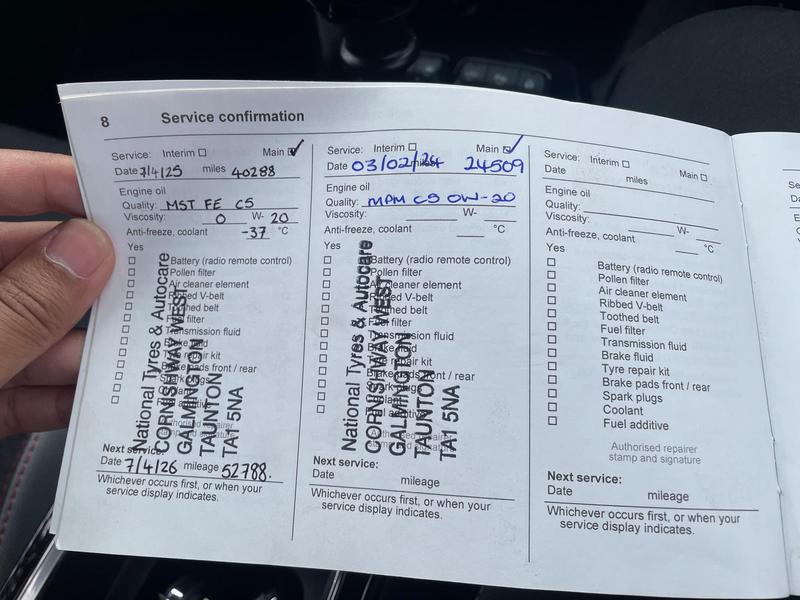 8 Service confirmation
Service: Interim Main
Date 7/4/25 miles 40288
Engine oil
Quality: MST FE C5
Viscosity: 0 W- 20
Anti-freeze, coolant -37 °C
Yes
Battery (radio remote control)
Pollen filter
Air cleaner element
Ribbed V-belt
Toothed belt
Fuel filter
Transmission fluid
Brake fluid
Tyre repair kit
Brake pads front / rear
Spark plugs
Coolant
Fuel additive
National Tyres & Autocare
CORNISHWAY WEST
GALMINGTON
TAUNTON
TA1 5NA
Next service:
Date 7/4/26 mileage 52788.
Whichever occurs first, or when your
service display indicates.
Service: Interim Main
Date 03/02/24 miles 24509
Engine oil
Quality: MPM C5 0W-20
Viscosity: W-
Anti-freeze, coolant °C
Yes
Battery (radio remote control)
Pollen filter
Air cleaner element
Ribbed V-belt
Toothed belt
Fuel filter
Transmission fluid
Brake fluid
Tyre repair kit
Brake pads front / rear
Spark plugs
Coolant
Fuel additive
National Tyres & Autocare
CORNISHWAY WEST
GALMINGTON
TAUNTON
TA1 5NA
Next service:
Date mileage
Whichever occurs first, or when your
service display indicates.
Service: Interim Main
Date miles
Engine oil
Quality:
Viscosity: W-
Anti-freeze, coolant °C
Yes
Battery (radio remote control)
Pollen filter
Air cleaner element
Ribbed V-belt
Toothed belt
Fuel filter
Transmission fluid
Brake fluid
Tyre repair kit
Brake pads front / rear
Spark plugs
Coolant
Fuel additive
Authorised repairer
stamp and signature
Next service:
Date mileage
Whichever occurs first, or when your
service display indicates.